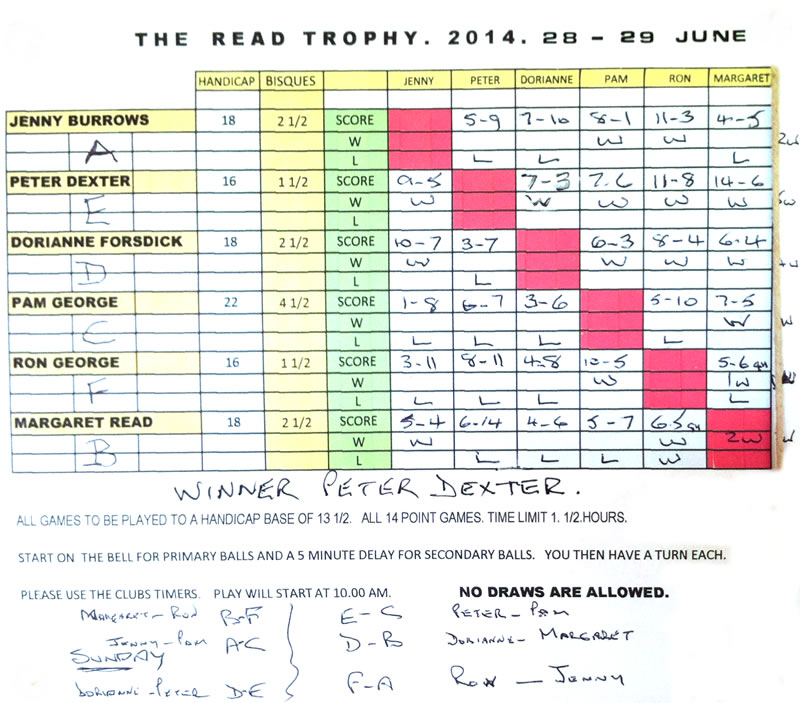 THE READ TROPHY. 2014. 28 - 29 JUNE
HANDICAP BISQUES JENNY PETER DORIANNE PAM RON MARGARET
JENNY BURROWS 18 2 1/2 SCORE 5-9 7-10 8-1 11-3 4-5
A W W W 2W
L L L L
PETER DEXTER 16 1 1/2 SCORE 9-5 7-3 7-6 11-8 14-6
E W W W W W W 5W
L
DORIANNE FORSDICK 18 2 1/2 SCORE 10-7 3-7 6-3 8-4 6-4
D W W W W W
L L
PAM GEORGE 22 4 1/2 SCORE 1-8 6-7 3-6 5-10 7-5
C W W W
L L L L L
RON GEORGE 16 1 1/2 SCORE 3-11 8-11 4-8 10-5 5-6
F W W 1W
L L L L L
MARGARET READ 18 2 1/2 SCORE 5-4 6-14 4-6 5-7 6-5
B W W W 2W
L L L L W
WINNER PETER DEXTER.
ALL GAMES TO BE PLAYED TO A HANDICAP BASE OF 13 1/2. ALL 14 POINT GAMES. TIME LIMIT 1. 1/2.HOURS.
START ON THE BELL FOR PRIMARY BALLS AND A 5 MINUTE DELAY FOR SECONDARY BALLS. YOU THEN HAVE A TURN EACH.
PLEASE USE THE CLUBS TIMERS. PLAY WILL START AT 10.00 AM. NO DRAWS ARE ALLOWED.
MARGARET - RON B-F E-C PETER - PAM
JENNY - PAM A-C D-B DORIANNE - MARGARET
SUNDAY
DORIANNE - PETER D-E F-A RON - JENNY